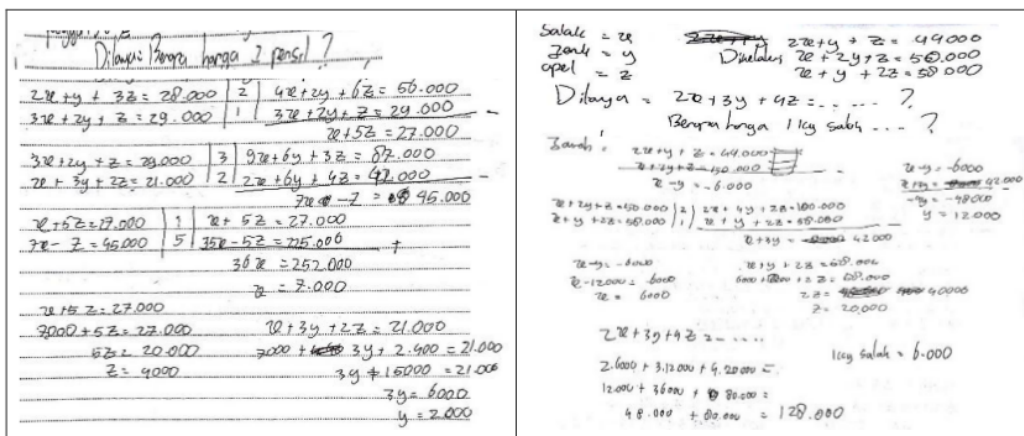 Ditanya: Berapa harga 2 pensil?
2x+y + 3z = 28.000 | 2 | 4x+2y+6z = 56.000
3x+2y+z = 29.000 | 1 | 3x+2y+z = 29.000 -
x+5z = 27.000
3x+2y+z = 29.000 | 3 | 9x+6y+3z = 87.000
x+3y+2z = 21.000 | 2 | 2x+6y+4z = 42.000 -
7x - z = 45.000
x+5z = 27.000 | 1 | x+5z = 27.000
7x - z = 45000 | 5 | 35x-5z = 225.000 +
36x = 252.000
x = 7.000
x+5z = 27.000
7000+5z = 27.000
5z = 20.000
z = 4000
x+3y+2z = 21.000
7000 + 3y + 2.400 = 21.000
3y + 15000 = 21.000
3y = 6000
y = 2.000
Salak = x
= y
apel = z
2x+y+z = 44.000
Diketahui x+2y+z = 50.000
x+y+2z = 58.000
Ditanya = 2x+3y+4z = ..... ?
Berapa harga 1 kg salak ... ?
Jawab:
2x+y+z = 44.000
x+2y+z = 50.000
x-y = -6.000
x+2y+z = 50.000 | 2 | 2x+4y+2z = 100.000
x+y+2z = 58.000 | 1 | x+y+2z = 58.000
x+3y = 42000
x-y = -6000
x+3y = 42.000
-4y = -48000
y = 12.000
x-y = -6000
x-12000 = -6000
x = 6000
x+y+2z = 58.000
2z = 40000
z = 20,000
2x+3y+4z = ....
2.6000 + 3.12000 + 4.20000 =
12000 + 36000 + 80.000 =
48.000 + 80.000 = 128.000
1 kg salak = 6.000